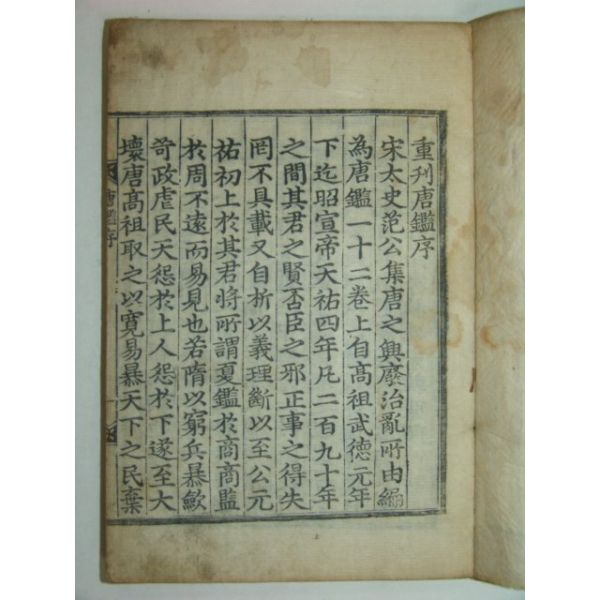 重刋唐鑑序
宋太史范公集唐之興廢治亂所由編
為唐鑑一十二卷上自高祖武德元年
下迄昭宣帝天祐四年凡二百九十年
之間其君之賢否臣之邪正事之得失
罔不具載又自折以義理斷以至公元
祐初上於其君將所謂夏鑑於商商監
於周不遠而易見也若隋以窮兵暴歛
苛政虐民天怨於上人怨於下遂至大
壞唐高祖取之以寬易暴天下之民棄
唐鑑序